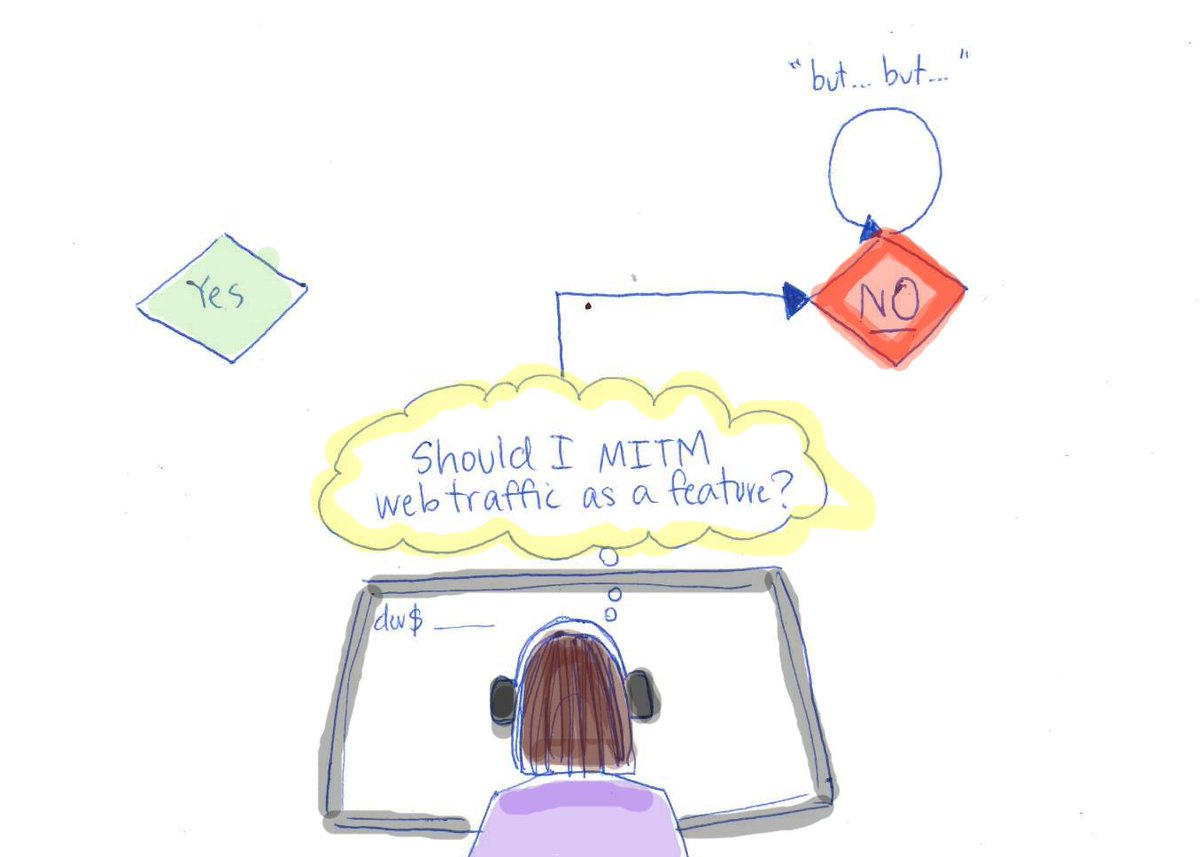 "but... but..."
Yes
NO
Should I MITM
web traffic as a feature?
dev$